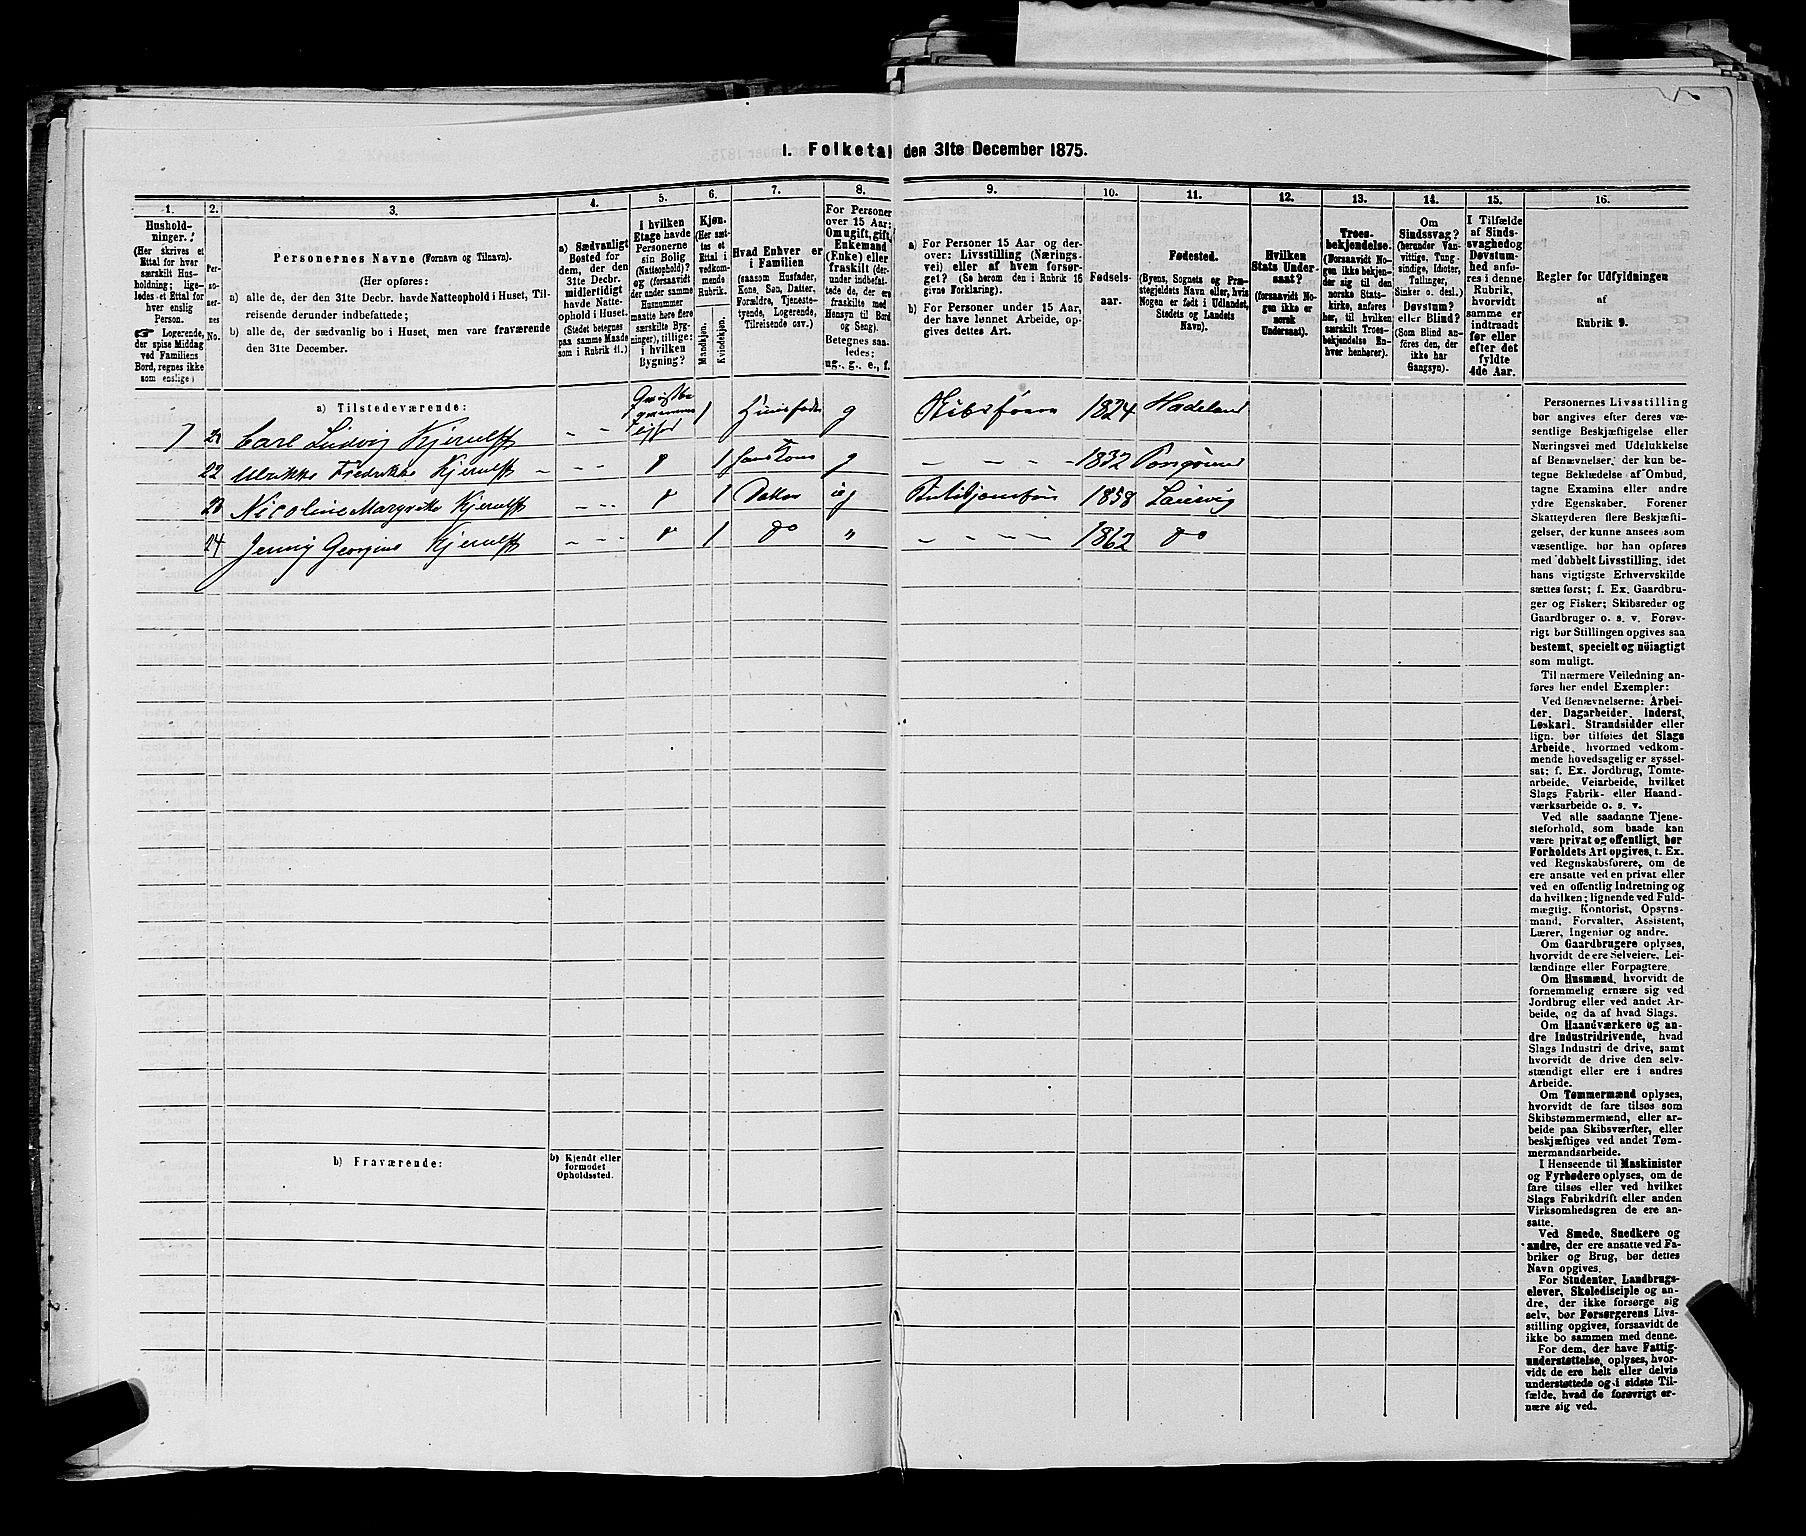 1. Folketal den 31te December 1875.
1.
Hushold-
ninger.
(Her skrives et
Ettal for hver
særskilt Hus-
holdning; lige-
ledes et Ettal for
hver enslig
Person.
☞ Logerende,
der spise Middag
ved Familiens
Bord, regnes ikke
som enslige)
2.
Per-
so-
ner-
nes
No.
3.
Personernes Navne (Fornavn og Tilnavn).
(Her opføres:
a) alle de, der den 31te Decbr. havde Natteophold i Huset, Til-
reisende derunder indbefattede;
b) alle de, der sædvanlig bo i Huset, men vare fraværende
den 31te December.
4.
a) Sædvanligt
Bosted for
dem, der den
31te Decbr.
midlertidigt
havde Natte-
ophold i Huset.
(Stedet betegnes
paa samme Maade
som i Rubrik 11.)
5.
I hvilken
Etage havde
Personerne
sin Bolig
(Natteophold)?
og (forsaavidt
der under samme
Husnummer
maatte høre flere
særskilte Byg-
ninger), tillige:
i hvilken
Bygning?
6.
Kjøn.
(Her sæt-
tes et
Ettal i
vedkom-
mende
Rubrik.
Mandkjøn.
Kvindekjøn.
7.
Hvad Enhver er
i Familien
(saasom Husfader,
Kone, Søn, Datter,
Forældre, Tjeneste-
tyende, Logerende,
Tilreisende osv.)
8.
For Personer
over 15 Aar:
Om ugift, gift,
Enkemand
(Enke) eller
fraskilt (der-
under indbefat-
tede de, der ere
fraskilte med
Hensyn til Bord
og Seng).
Betegnes saa-
ledes:
ug., g., e., f.
9.
a) For Personer 15 Aar og der-
over: Livsstilling (Nærings-
vei) eller af hvem forsør-
get? (Se herom den i Rubrik 16
givne Forklaring).
b) For Personer under 15 Aar,
der have lønnet Arbeide, op-
gives dettes Art.
10.
Fødsels-
aar.
11.
Fødested.
(Byens, Sognets og Præ-
stegjeldets Navn eller, hvis
Nogen er født i Udlandet,
Stedets og Landets
Navn).
12.
Hvilken
Stats Under-
saat?
(forsaavidt No-
gen ikke er
norsk
Undersaat).
13.
Troes-
bekjendelse.
(Forsaavidt No-
gen ikke bekjen-
der sig til den
norske Stats-
kirke, anføres
her, til hvilken
særskilt Troes-
bekjendelse En-
hver henhører).
14.
Om
Sindssvag?
(herunder Van-
vittige, Tung-
sindige, Idioter,
Tullinger,
Sinker o. desl.)
Døvstum?
eller Blind?
(Som Blind an-
føres den, der
ikke har
Gangsyn).
15.
I Tilfælde
af Sinds-
svaghed og
Døvstum-
hed anfø-
res i denne
Rubrik,
hvorvidt
samme er
indtraadt
før eller
efter det
fyldte
4de Aar.
16.
Regler for Udfyldningen
af
Rubrik 9.
a) Tilstedeværende:
7 21 Carl Ludvig Kjerulff - - 1 Huusfader g 1824 Hadeland
22 Ulrikke Fredrikke Kjerulff - - - - " 1 hans Kone g - - - - 1832
23 Nicoline Margrethe Kjerulff - - - " 1 Datter ug 1858 Laurvig
24 Jenny Georgine Kjerulff - - - " 1 do " - - - - 1862 do
b) Fraværende:
b) Kjendt eller
formodet
Opholdssted.
Personernes Livsstilling
bør angives efter deres væ-
sentlige Beskjæftigelse eller
Næringsvei med Udelukkelse
af Benævnelser, der kun be-
tegne Beklædelse af Ombud,
tagne Examina eller andre
ydre Egenskaber. Forener
Skatteyderen flere Beskjæfti-
gelser, der kunne ansees som
væsentlige, bør han opføres
med dobbelt Livsstilling, idet
hans vigtigste Erhvervskilde
sættes først; f. Ex. Gaardbru-
ger og Fisker; Skibsreder og
Gaardbruger o. s. v. Forøv-
rigt bør Stillingen opgives saa
bestemt, specielt og nöiagtigt
som muligt.
Til nærmere Veiledning an-
føres her endel Exempler:
Ved Benævnelserne: Arbei-
der, Dagarbeider, Inderst,
Løskarl, Strandsidder eller
lign. bør tilføies det Slags
Arbeide, hvormed vedkom-
mende hovedsagelig er syssel-
sat; f. Ex. Jordbrug, Tomte-
arbeide, Veiarbeide, hvilket
Slags Fabrik- eller Haand-
værksarbeide o. s. v.
Ved alle saadanne Tjene-
steforhold, som baade kan
være privat og offentligt, bør
Forholdets Art opgives, t. Ex.
ved Regnskabsførere, om de
ere ansatte ved en privat eller
ved en offentlig Indretning og
da hvilken; lignende ved Fuld-
mægtig, Kontorist, Opsyns-
mand, Forvalter, Assistent,
Lærer, Ingeniør og andre.
Om Gaardbrugere oplyses,
hvorvidt de ere Selveiere, Lei-
lændinge eller Forpagtere.
Om Husmænd, hvorvidt de
fornemmelig ernære sig ved
Jordbrug eller ved andet Ar-
beide, og da af hvad Slags.
Om Haandværkere og an-
dre Industridrivende, hvad
Slags Industri de drive, samt
hvorvidt de drive den selv-
stændigt eller ere i andres
Arbeide.
Om Tømmermænd oplyses,
hvorvidt de fare tilsøs som
Skibstømmermænd, eller ar-
beide paa Skibsværfter, eller
beskjæftiges ved andet Tøm-
mermandsarbeide.
I Henseende til Maskinister
og Fyrbødere oplyses, om de
fare tilsøs eller ved hvilket
Slags Fabrikdrift eller anden
Virksomhedsgren de ere an-
satte.
Ved Smede, Snedkere og
andre, der ere ansatte ved Fa-
briker og Brug, bør dettes
Navn opgives.
For Studenter, Landbrugs-
elever, Skoledisciple og an-
dre, der ikke forsørge sig
selv, bør Forsørgerens Livs-
stilling opgives, forsaavidt de
ikke bo sammen med denne.
For dem, der have Fattig-
understøttelse, oplyses, hvor-
vidt de ere helt eller delvis
understøttede og i sidste Til-
fælde, hvad de forøvrigt er-
nære sig ved.